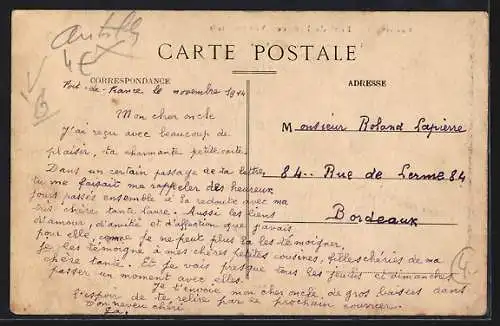 Antilles
4€
CARTE POSTALE
CORRESPONDANCE
ADRESSE
Fort-de-France le novembre 1914
Mon cher oncle
J'ai reçu avec beaucoup de
plaisir, ta charmante petite carte
Dans un certain passage de ta lettre,
tu me faisait ma rappeler des heureux
jours passés ensemble à la redoute avec ma
très chère tante Laure. Aussi les liens
d'amour, d'amitié et d'affection que j'avais
pour elle, comme je ne peut plus la les témoigner,
je les témoigne à mes chères petites cousines, filles chéries de ma
chère tante. Et je vais presque tous les jeudis et dimanches
passer un moment avec elles.
Je t'envoie mon cher oncle, de gros baisers dans
l'espoir de te relire par le prochain courrier.
Ton neveu chéri
Monsieur Roland Lapierre
84.. Rue de Lerme 84
Bordeaux
4